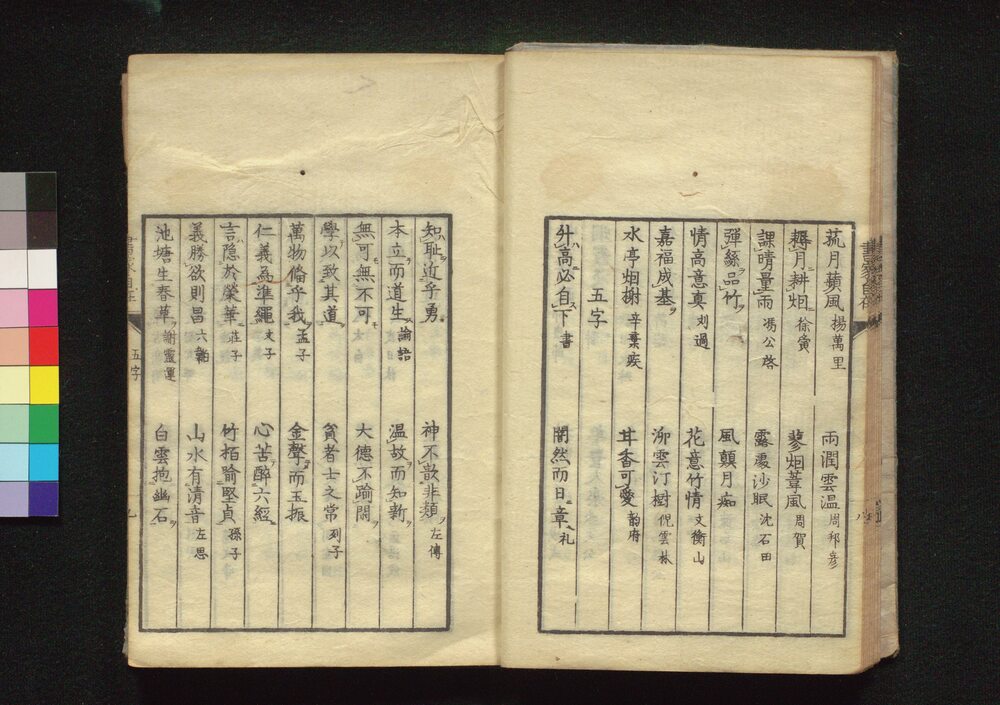 菰月蘋風 楊萬里 雨潤雲温 周邦彦
耨月耕烟 徐寅 蓼烟葦風 周賀
課晴量雨 馮公啓 露處沙眠 沈石田
彈絲品竹 風顛月痴
情高意真 刘過 花意竹情 文衡山
嘉福成基 泖雲汀樹 倪雲林
水亭烟榭 辛棄疾 茸香可愛 韵府
五字
升高必自下 書 闇然而日章 礼
知恥近乎勇 神不歆非類 左傳
本立而道生 論語 温故而知新
無可無不可 大德不踰閑
學以致其道 貧者士之常 列子
萬物備乎我 孟子 金聲而玉振
仁義為準繩 文子 心苦醉六經
言隐於榮華 莊子 竹柏喻堅貞 孫子
義勝欲則昌 六韜 山水有清音 左思
池塘生春草 謝靈運 白雲抱幽石
五字
九